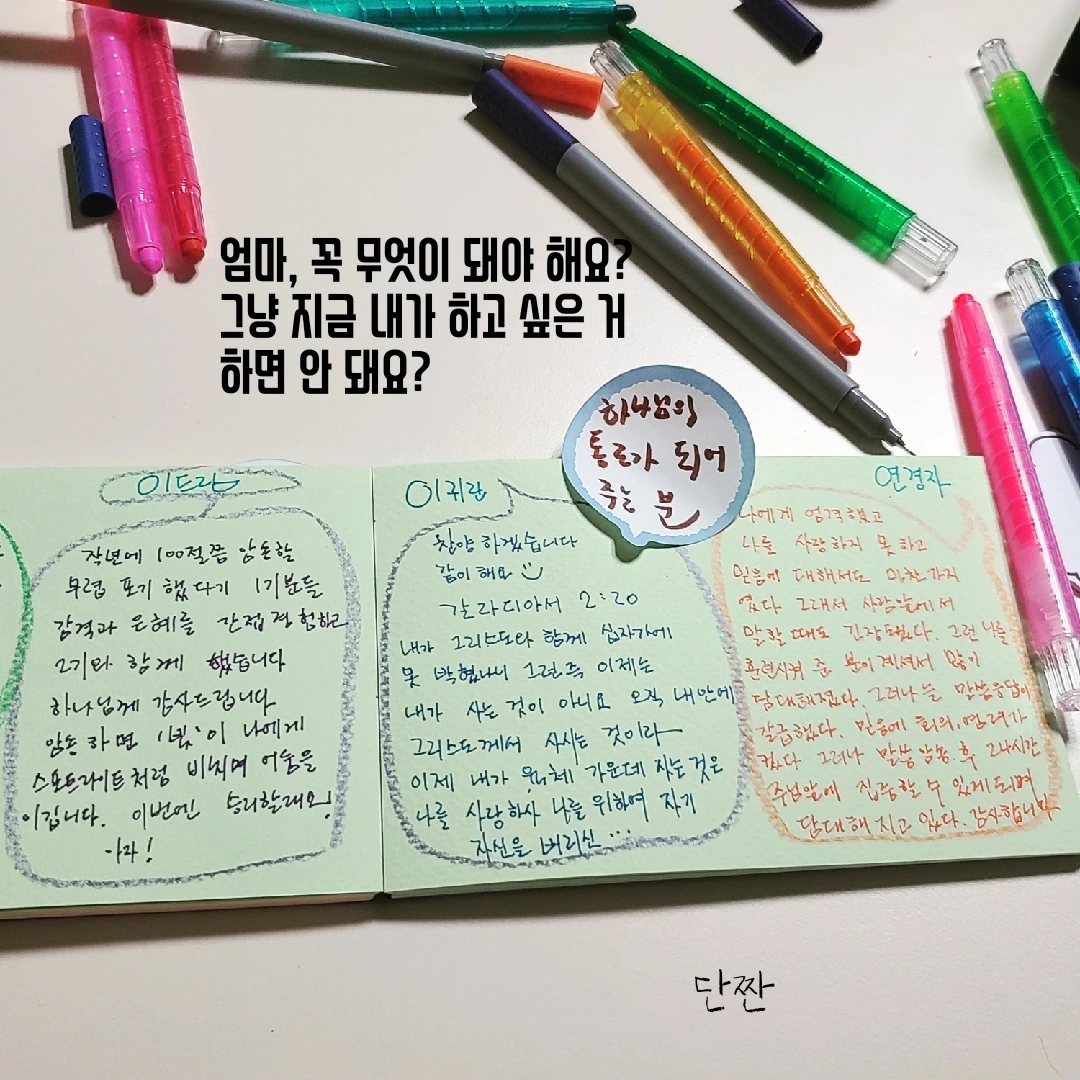 엄마, 꼭 무엇이 돼야 해요?
그냥 지금 내가 하고 싶은 거
하면 안 돼요?
하나님의
통로가 되어
주는 분
이드림
작년에 100절쯤 암논할
무렵 포기 했다가 1기분들
감격과 은혜를 간접경험하고
2기와 함께 했습니다
하나님께 감사드립니다
암논하면 '빛'이 나에게
스포트라이트처럼 비치며 어둠을
이깁니다. 이번엔 승리할래요!
아자!
이귀림
찬양하겠습니다
같이해요
갈라디아서 2:20
내가 그리스도와 함께 십자가에
못 박혔나니 그런즉 이제는
내가 사는 것이 아니요 오직 내안에
그리스도께서 사시는 것이라
이제 내가 육체 가운데 사는것은
나를 사랑하사 나를 위하여 자기
자신을 버리신...
연경자
나에게 엄격했고
나를 사랑하지 못하고
믿음에 대해서도 마찬가지
였다 그래서 사람앞에서
말할때도 긴장되었다. 그런 나를
훈련시켜 준 분이계셔서 많이
담대해졌다. 그러나 늘 말씀응답이
갈급했다. 믿음에 회의, 염려가
컸다 그러나 말씀암송 후 그나시간
주님앞에 집중할 수 있게되며
담대해지고 있다. 감사합니다
단짠